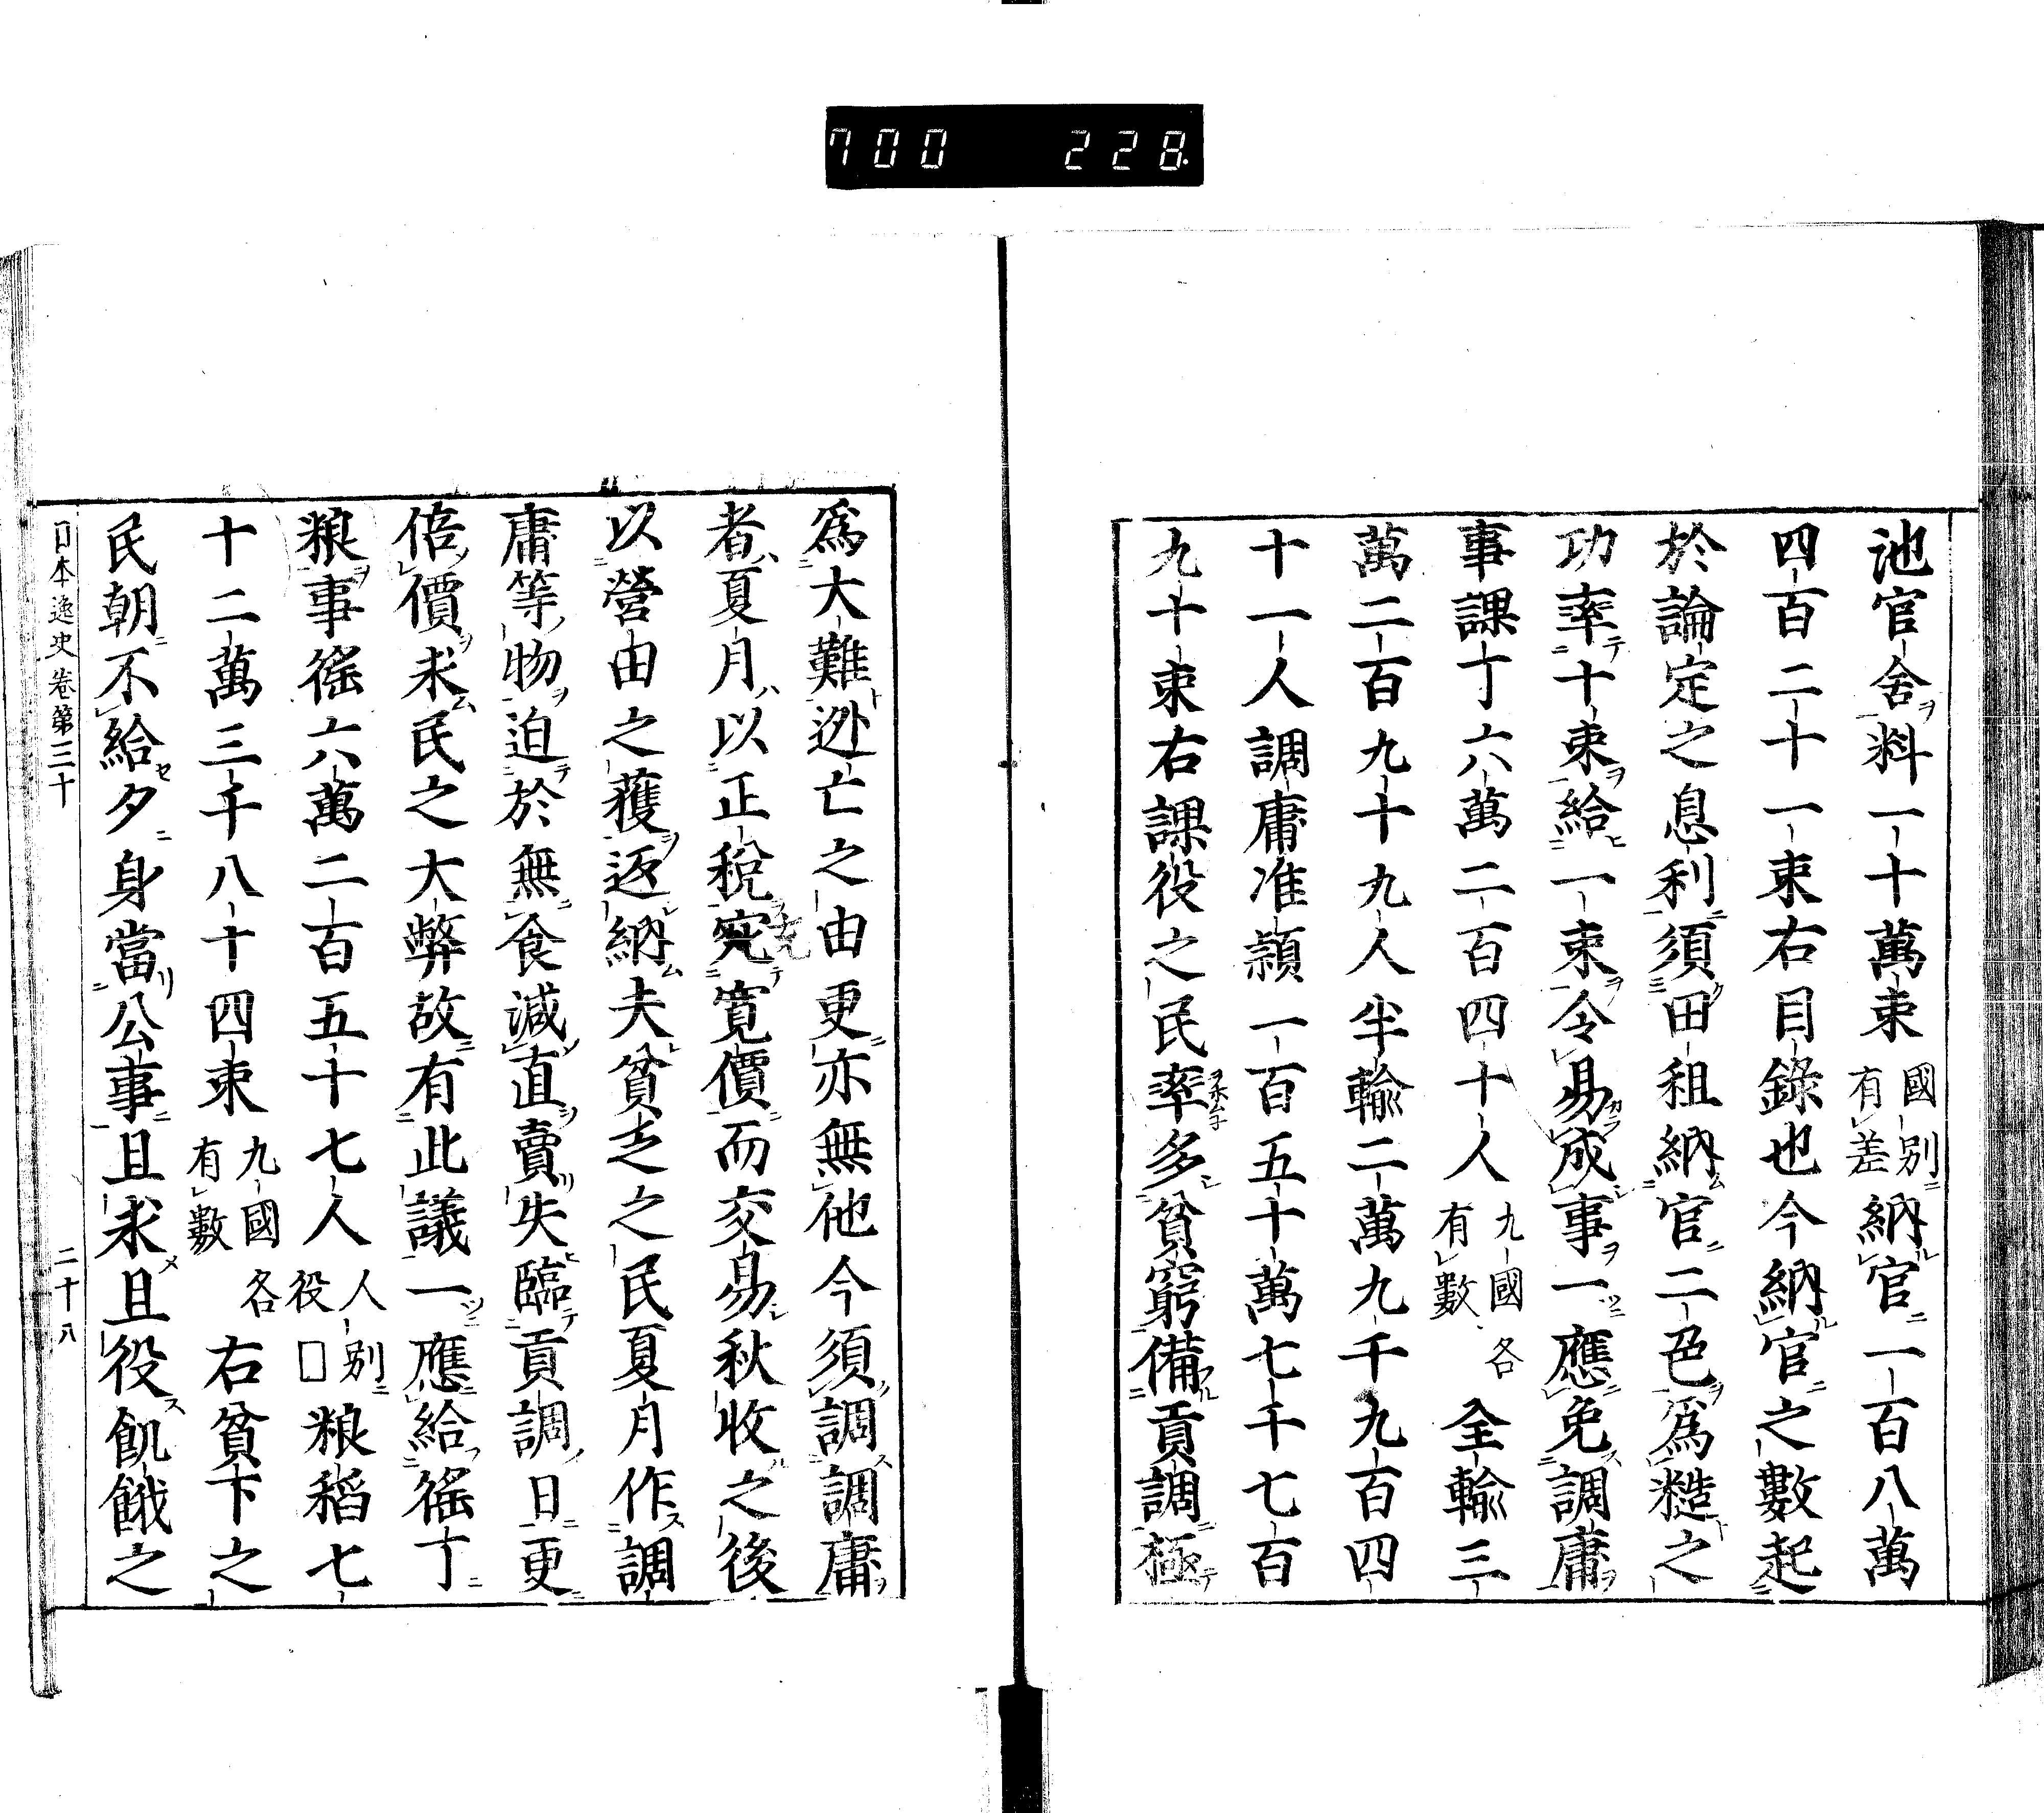 700 228
池官舍料一十萬束國別有差納官一百八萬
四百二十一束右目錄也今納官之數起
於論定之息利須田租納官二色爲糙之
功率十束給一束令易成事一應免調庸
事課丁六萬二百四十人九國各有數全輸三
萬二百九十九人半輸二萬九千九百四
十一人調庸准頴一百五十萬七千七百
九十束右課役之民率多貧窮備貢調極
爲大難逃亡之由更亦無他今須調調庸
者夏月以正稅寬價而交易秋收之後
以營由之獲返納夫貧乏之民夏月作調
庸等物迫於無食減直賣失臨貢調日更
倍價求民之大弊故有此議一應給徭丁
粮事徭六萬二百五十七人人別役□粮稻七
十二萬三千八十四束九國各有數右貧下之
民朝不給夕身當公事且求且役飢餓之
日本逸史卷第三十 二十八